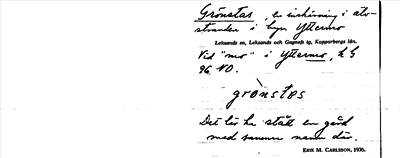 Grönstas, en inskärning i älv-
stranden i byn Yttermo
Leksands sn, Leksands och Gagnefs tg, Kopparbergs län.
Vid "mo" i Yttermo, k G
96 NO.
grònstɑs
Det lär ha stått en gård
med samma namn där.
ERIK M. CARLSSON, 1936.